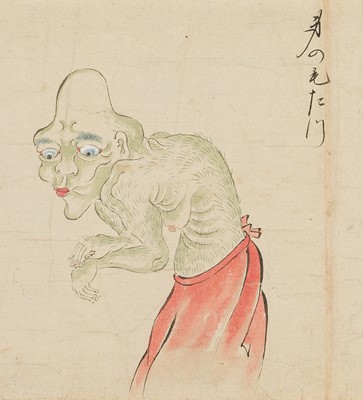 身の毛たつ